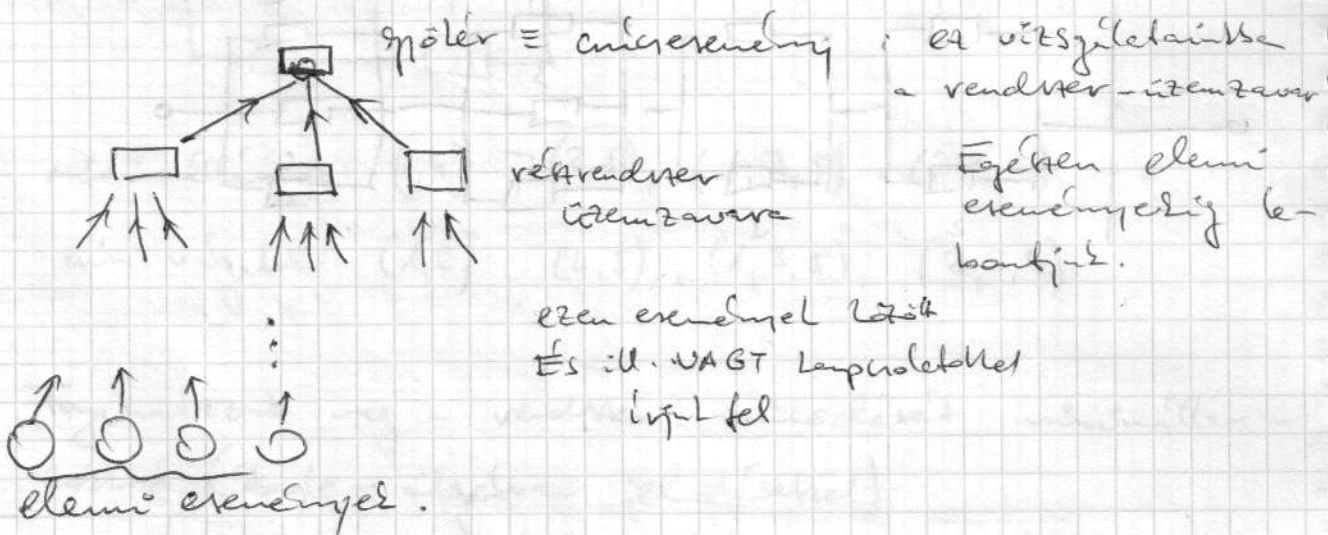 ≡ csúcsesemény ; ez vizsgálatainkba
a rendszer-üzemzavar
részrendszer
üzemzavara
Egészen elemi
eseményekig le-
bontjuk.
ezen események között
És ill. VAGY kapcsolatokat
írjuk fel
elemi események.